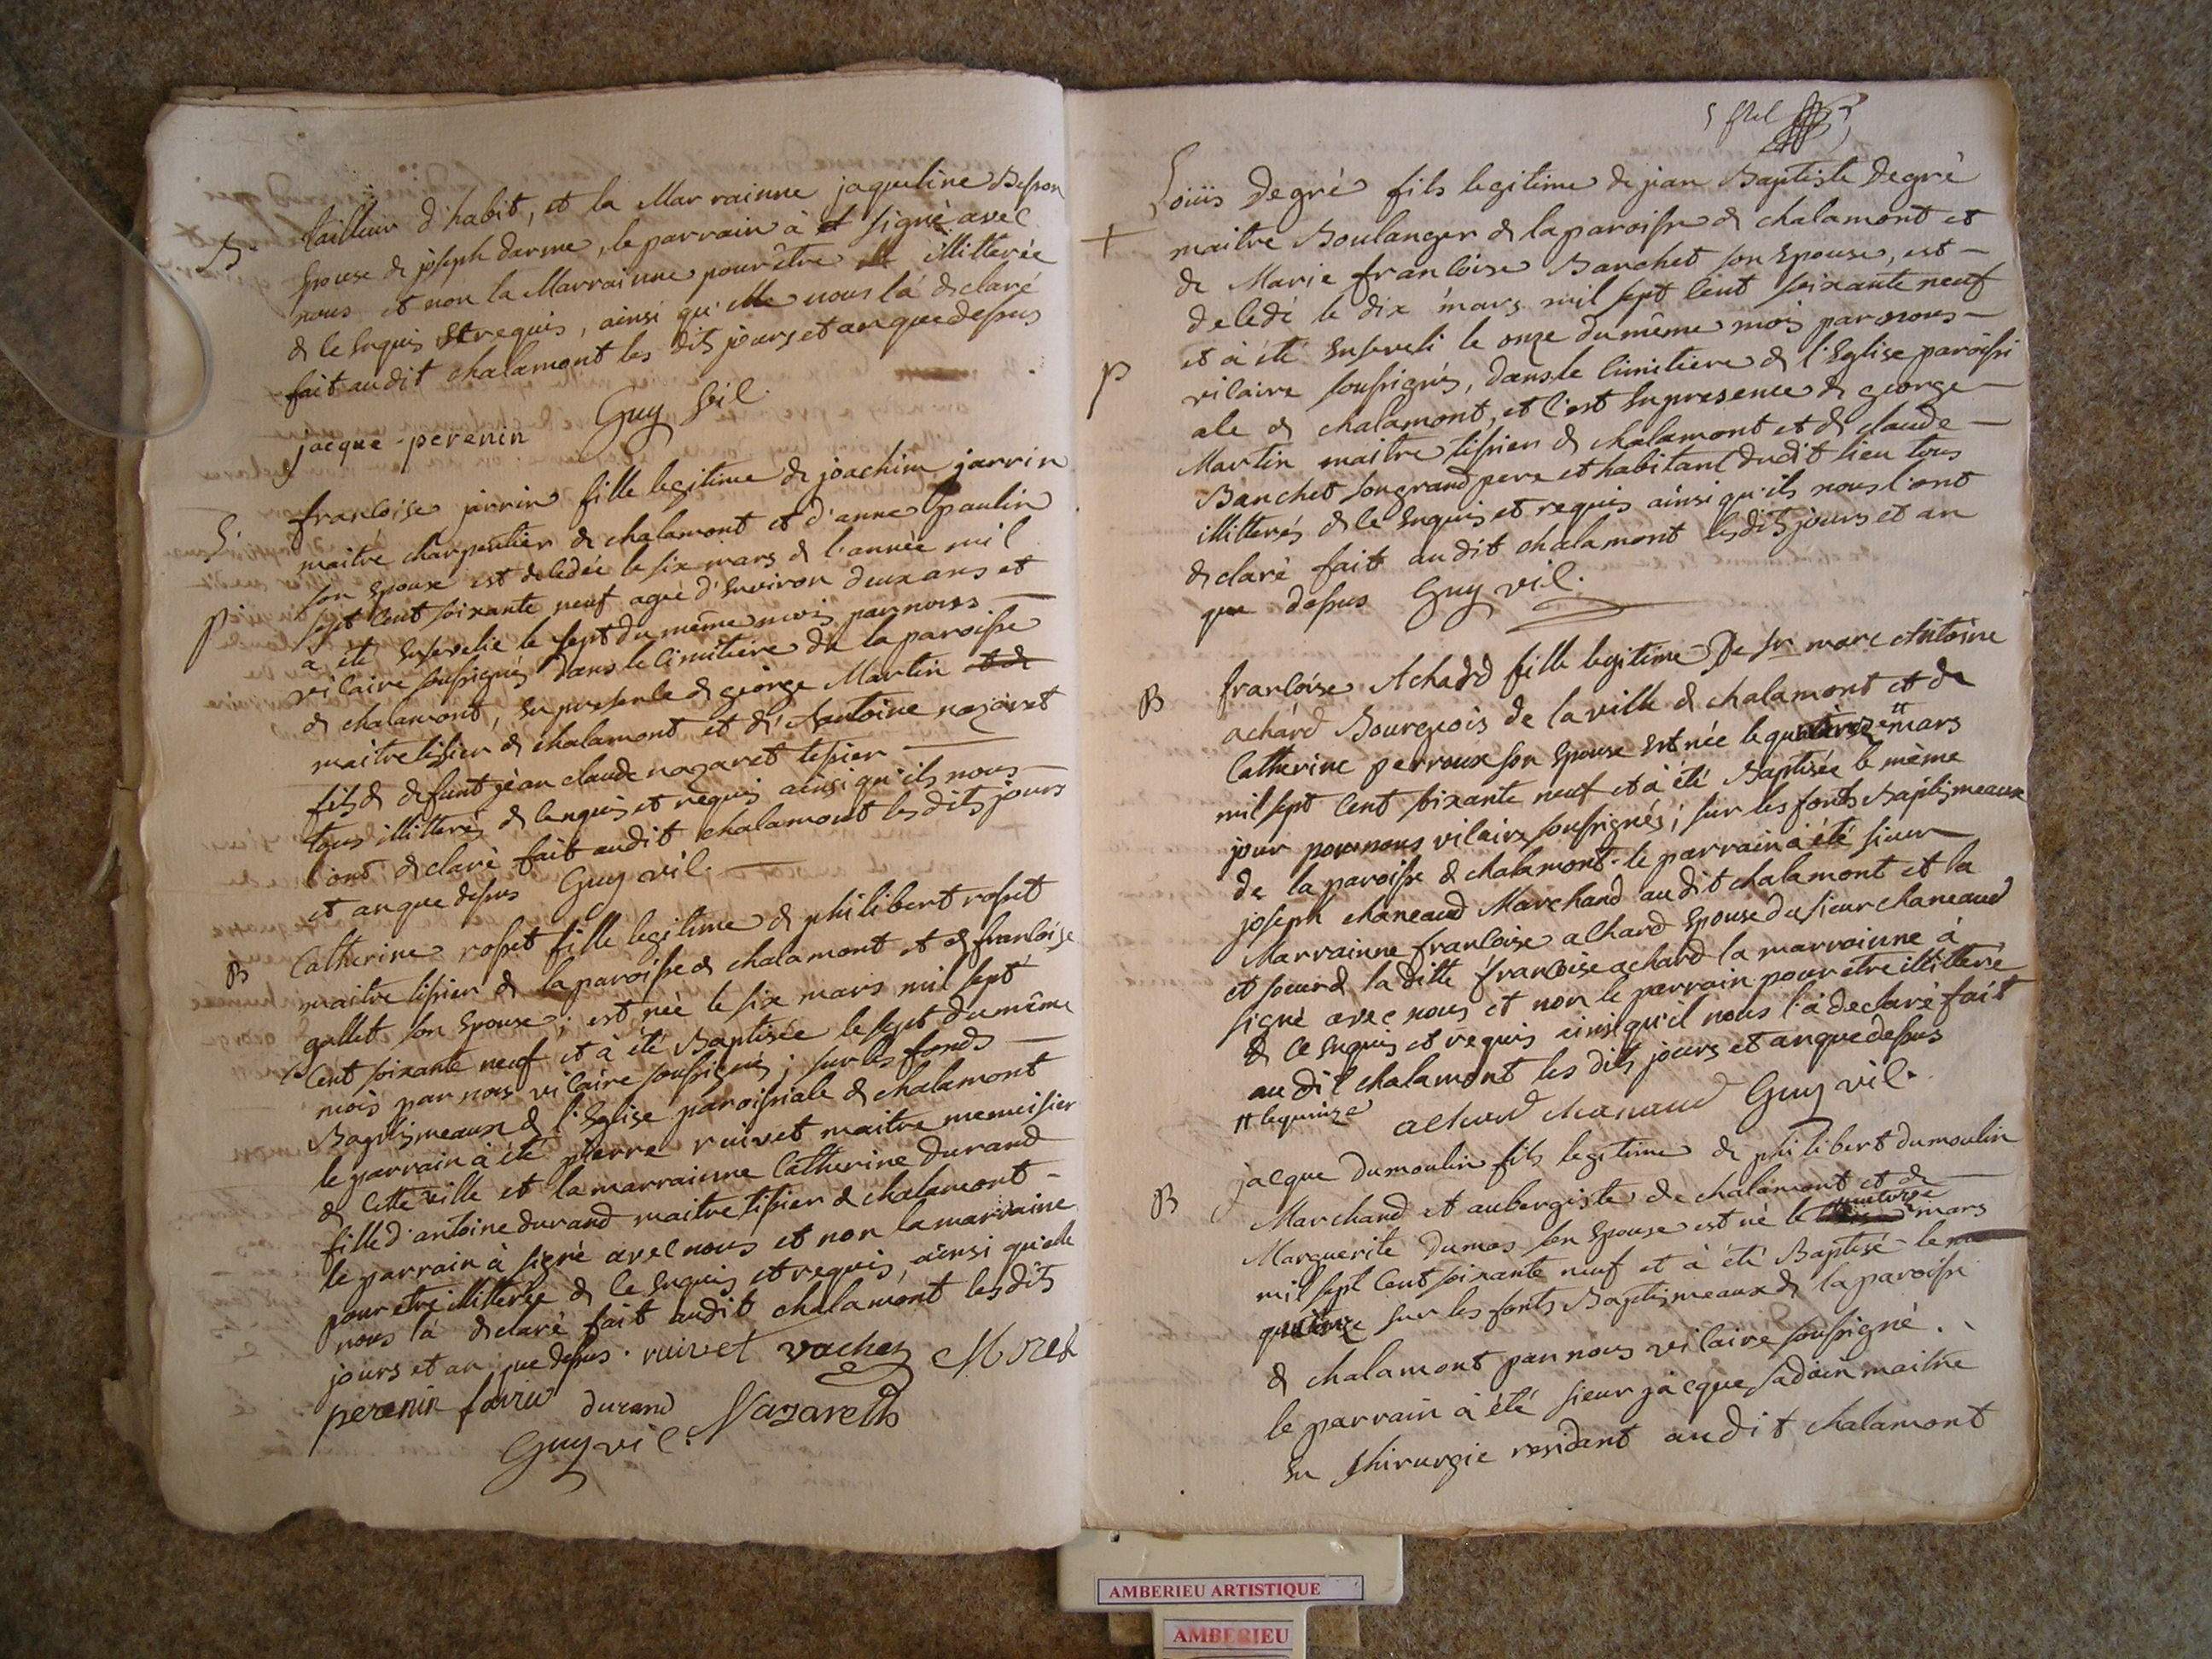 B. tailleur d'habit, et la Marrainne jaqueline Besson
Epouse de joseph darme, le parrain à signé avec
nous et non la Marrainne pour être illitterée
de ce Enquis Et requis, ainsi qu'elle nous la declaré
fait audit chalamont les dits jours et an que dessus
jacque-perenin Guy vic.
S. francoise jarrin fille legitime de joachim jarrin
maitre charpentier de chalamont et d'anne paulin
son Epouse est decedée le six mars de l'année mil
sept cent soixante neuf agée d'Environ deux ans et
à été Ensevelie le sept du même mois par nous
vicaire soussigné dans le cimitiere de la paroisse
de chalamont, En presence de george Martin et de
maitre tissier de chalamont et d'Antoine nazaret
fils de defunt jean claude nazaret tissier
tous illitterés de ce enquis et requis ainsi qu'ils nous
l'ont declaré fait audit chalamont les dits jours
et an que dessus Guy vic.
B Catherine rosset fille legitime de philibert rosset
maitre tissier de la paroisse de chalamont et de francoise
gallet son Epouse; est née le six mars mil sept
Cent soixante neuf et à été Baptisée le sept du même
mois par nous vicaire soussigné; sur les fonds
Baptismeaux de l'Eglise paroissiale de chalamont
le parrain à été pierre ruivet maitre menuisier
de cette ville et la marrainne Catherine durand
fille d'antoine durand maitre tissier de chalamont
le parrain à signé avec nous et non la marraine
pour etre illitterée de ce Enquis et requis, ainsi qu'elle
nous la declaré fait audit chalamont les dits
jours et an que dessus. ruivet vacher
perenin durand Nazareth
Guy vic.
Loüis Degré fils legitime de jean Baptiste Degré
+ maitre Boulanger de la paroisse de chalamont et
de Marie francoise Banchet son Epouse, est
decedé le dix mars mil sept cent soixante neuf
et à été Enseveli le onze du même mois par nous
p vicaire soussigné, dans le cimitiere de l'Eglise paroissi
ale de chalamont, et c'est En presence de george
Martin maitre tissier de chalamont et de claude
Banchet son grand pere et habitant dudit lieu tous
illitterés de ce Enquis et requis ainsi qu'ils nous l'ont
declaré fait audit chalamont les dits jours et an
que dessus Guy vic.
B francoise Achard fille legitime De sr. marc Antoine
achard Bourgeois de la ville de chalamont et de
Catherine perroux son Epouse Est née le mars
mil sept Cent soixante neuf et à été Baptisée le même
jour par nous vicaire soussigné; sur les fonts Baptismeaux
de la paroisse de chalamont. le parrain à été sieur
joseph chaneaud Marchand audit chalamont et la
Marrainne francoise achard Epouse du sieur chaneaud
et soeur de la ditte francoise achard la marrainne à
signé avec nous et non le parrain pour etre illitteré
de ce Enquis et requis ainsi qu'il nous l'a declaré fait
au dit chalamont les dits jours et an que dessus
tt le quinze achard chanaud Guy vic.
B jacque dumoulin fils legitime de philibert dumoulin
Marchand et aubergiste de chalamont et de
Marguerite dumas son Epouse est né le quatorze mars
mil sept Cent soixante neuf et à été Baptisé le
quinze sur les fonts Baptismeaux de la paroisse
de chalamont par nous vicaire soussigné.
le parrain à été sieur jacque sadoin maitre
En chirurgie residant audit chalamont
AMBERIEU ARTISTIQUE
AMBERIEU